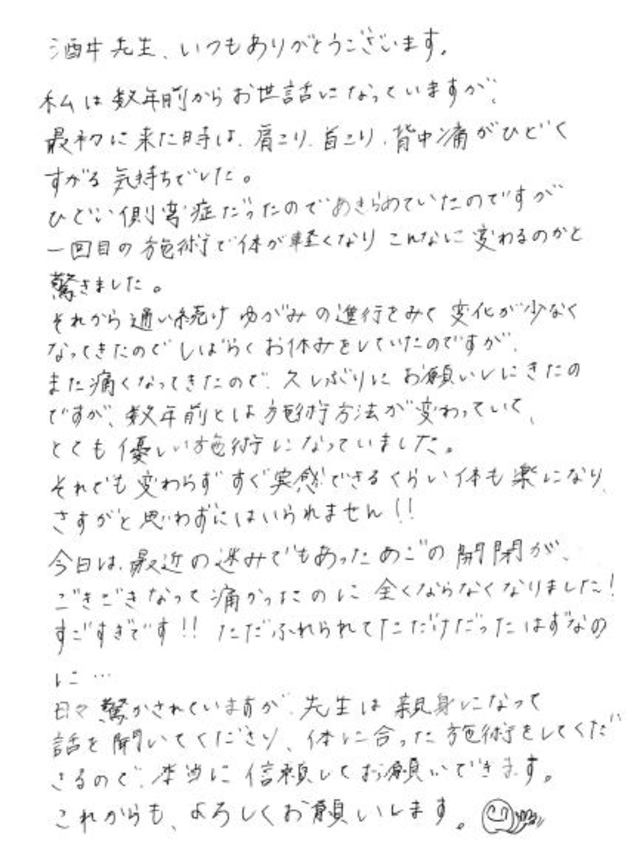 酒井先生、いつもありがとうございます。
私は数年前からお世話になっていますが、
最初に来た時は、肩こり、首こり、背中痛がひどく
すがる気持ちでした。
ひどい側弯症だったのであきらめていたのですが
一回目の施術で体が軽くなりこんなに変わるのかと
驚きました。
それから通い続けゆがみの進行をみて変化が少なく
なってきたのでしばらくお休みをしていたのですが、
また痛くなってきたので、久しぶりにお願いしにきたの
ですが、数年前とは施術方法が変わっていて、
とても優しい施術になっていました。
それでも変わらずすぐ実感できるくらい体も楽になり、
さすがと思わずにはいられません!!
今日は、最近の悩みでもあったあごの開閉が、
ごきごきなって痛かったのに全くならなくなりました!
すごすぎです!!ただふれられてただけだったはずなの
に…
日々驚かされていますが、先生は親身になって
話を聞いてくださり、体に合った施術をしてくだ
さるので、本当に信頼してお願いできます。
これからも、よろしくお願いします。